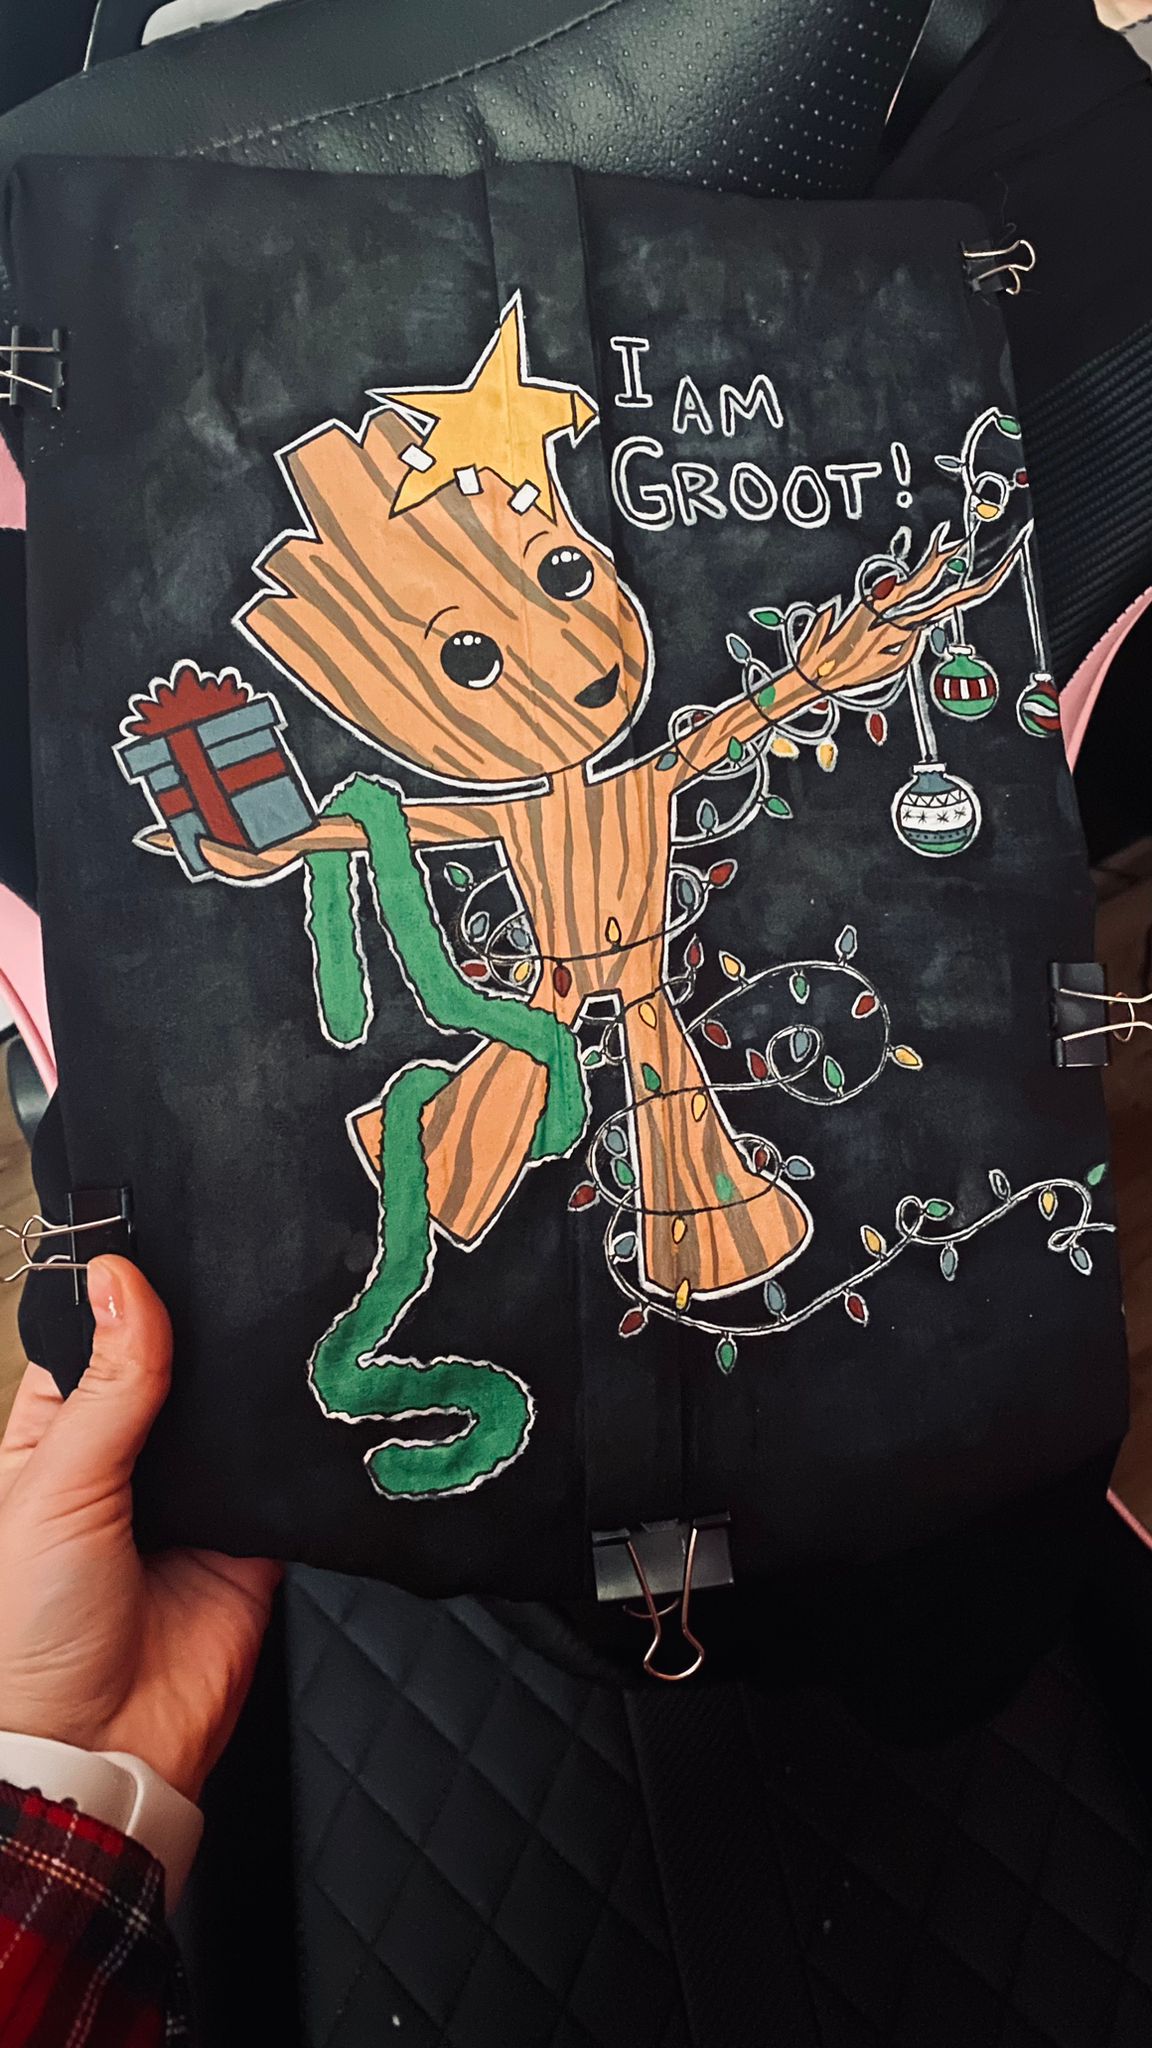 I AM
GROOT!